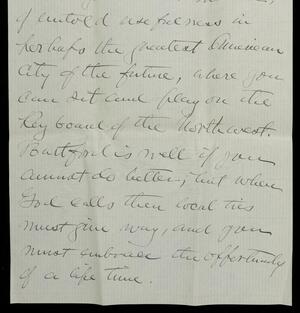 of untold usefulness in
perhaps the greatest American
city of the future, where you
can sit and play on the
Key board of the Northwest.
is well if you
cannot do better, but when
God calls then local ties
must give way, and you
must embrace the opportunity
of a life time.